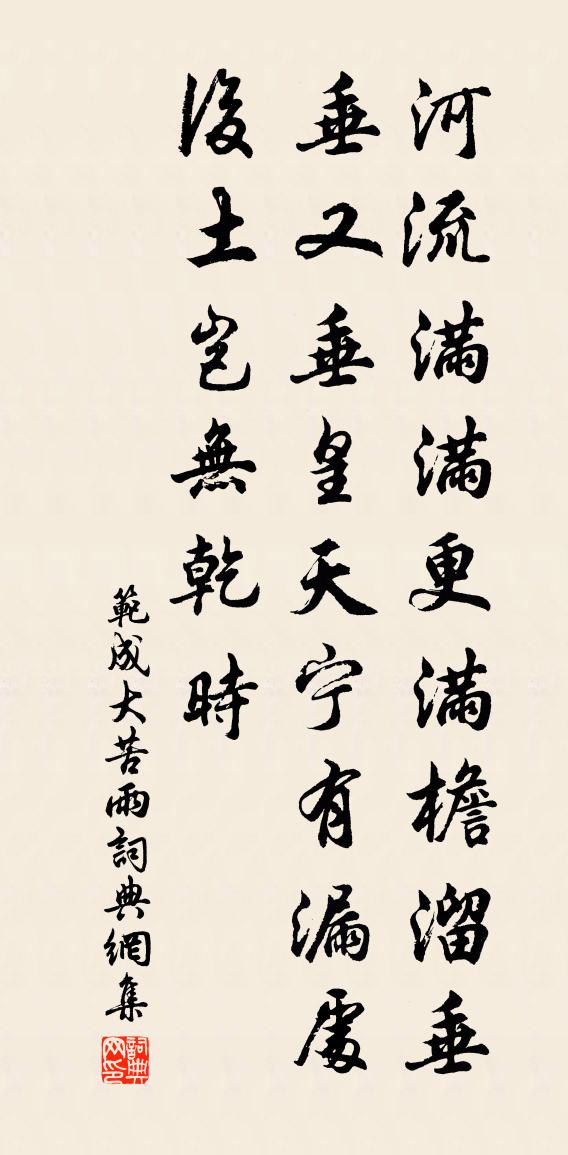 河流滿滿更滿檐溜垂
垂又垂皇天宁有漏處
後土岂無乾時
範成大苦雨詞典網集
詞典网印